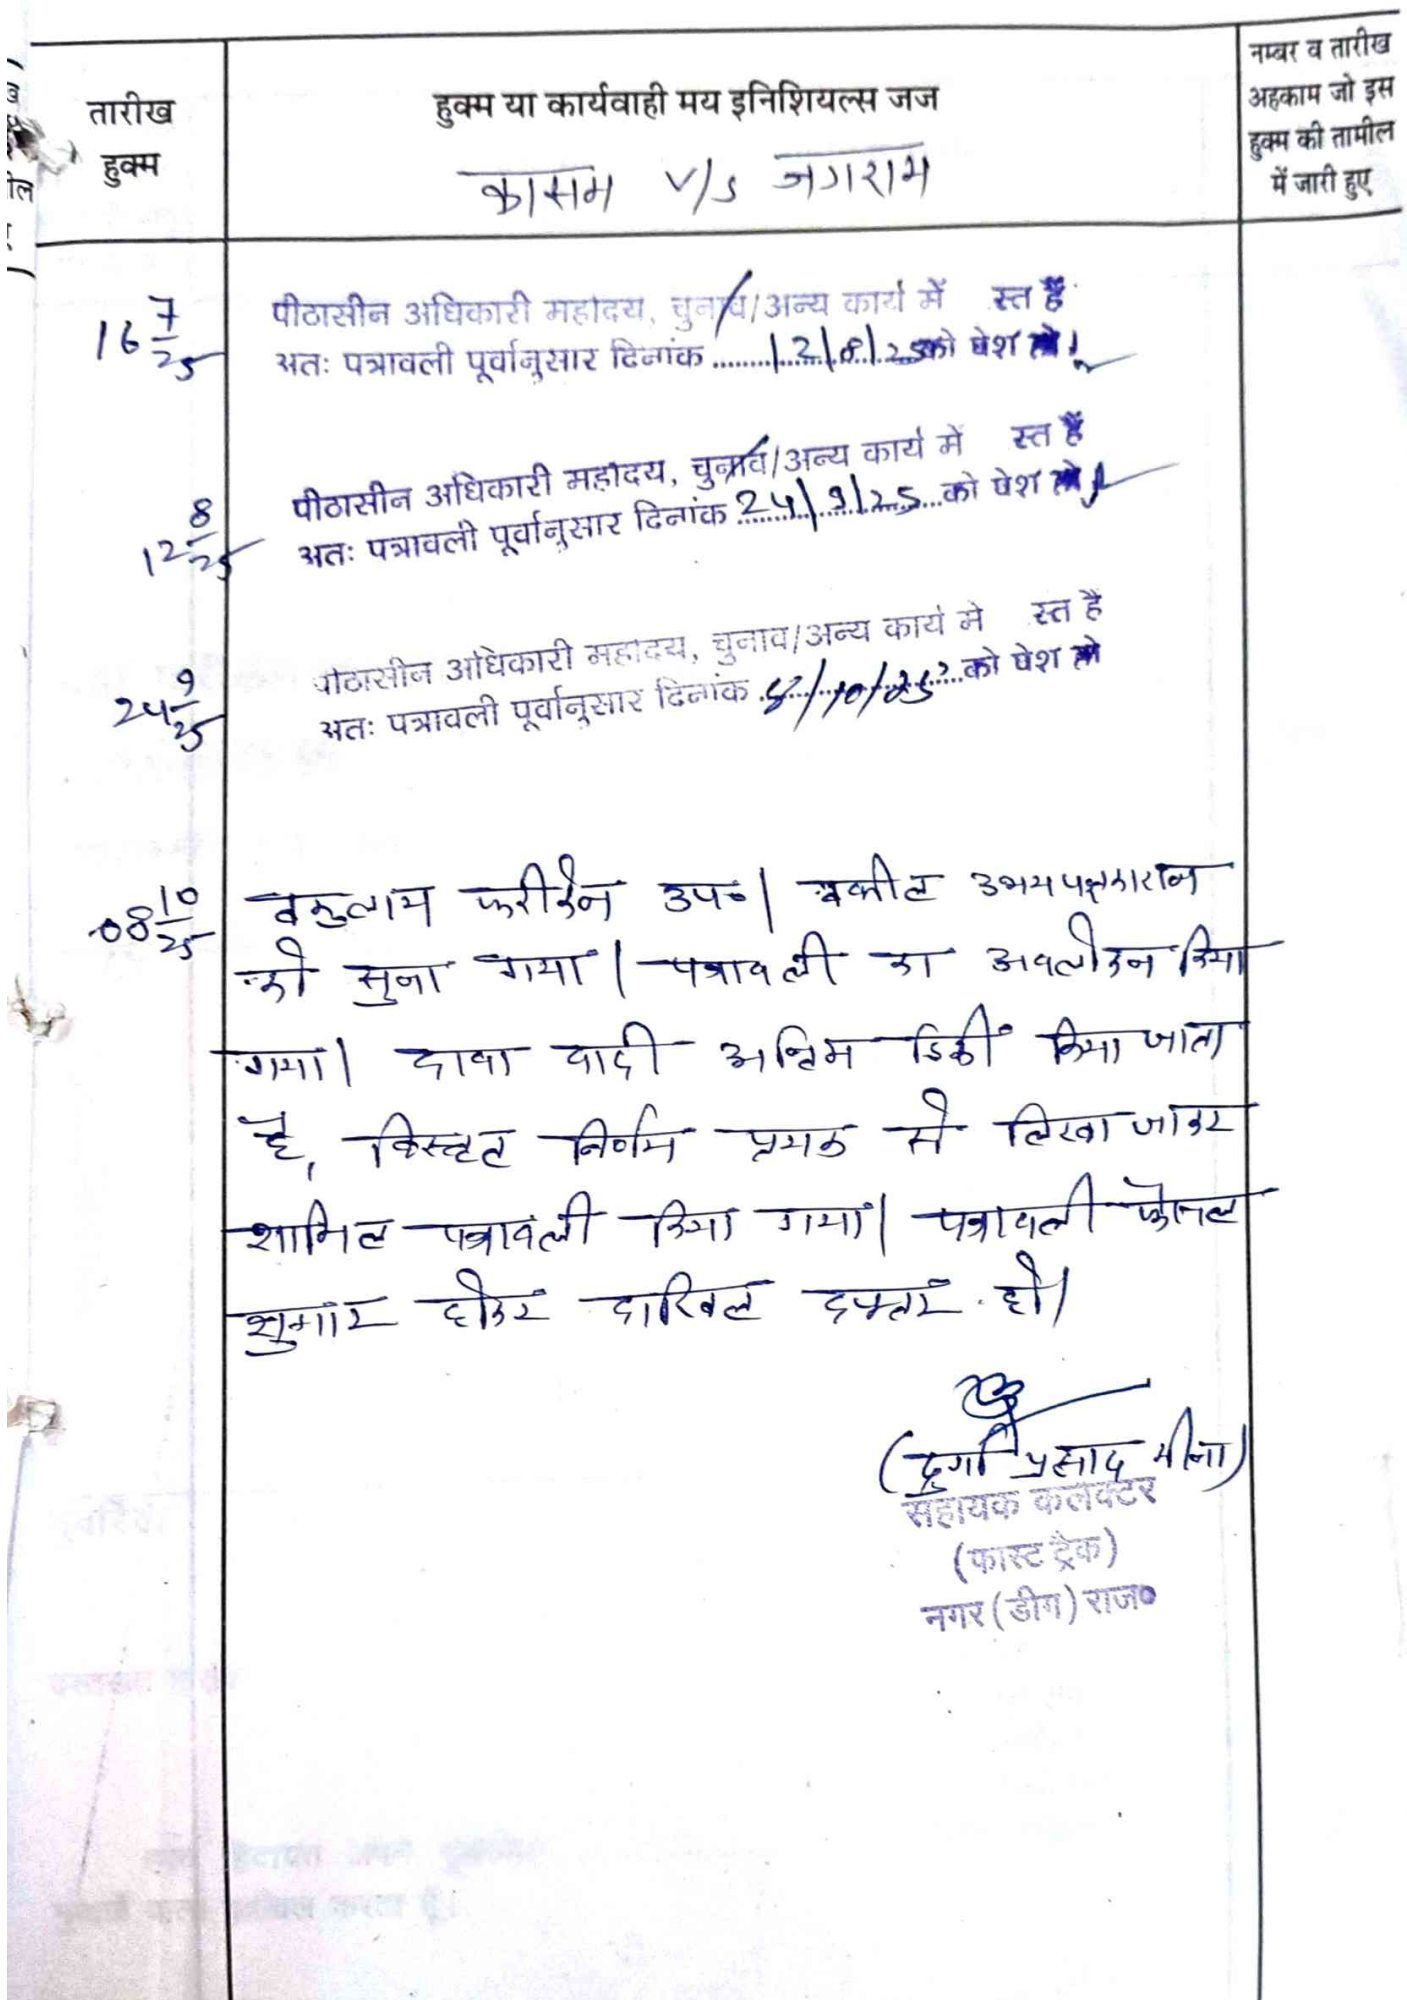 तारीख
हुक्म
हुक्म या कार्यवाही मय इनिशियल्स जज
कासम v/s जगराम
नम्बर व तारीख
अहकाम जो इस
हुक्म की तामील
में जारी हुए
16 7/25
पीठासीन अधिकारी महोदय, चुनाव/अन्य कार्य में स्त हैं
अतः पत्रावली पूर्वानुसार दिनांक 12/8/25 को पेश हो।
12 8/25
पीठासीन अधिकारी महोदय, चुनाव/अन्य कार्य में स्त हैं
अतः पत्रावली पूर्वानुसार दिनांक 24/9/25 को पेश हो
24 9/25
पीठासीन अधिकारी महोदय, चुनाव/अन्य कार्य मे स्त है
अतः पत्रावली पूर्वानुसार दिनांक 8/10/25 को पेश हो
08 10/25
वकुलाय फरीकेन उप०। वकील उभयपक्षकारान
को सुना गया। पत्रावली का अवलोकन किया
गया। दावा वादी अन्तिम डिक्री किया जाता
है, विस्तृत निर्णय पृथक से लिखा जाकर
शामिल पत्रावली किया गया। पत्रावली फैसल
शुमार होकर दाखिल दफ्तर हो।
(दुर्गा प्रसाद मीना)
सहायक कलक्टर
(फास्ट ट्रैक)
नगर (डीग) राज०